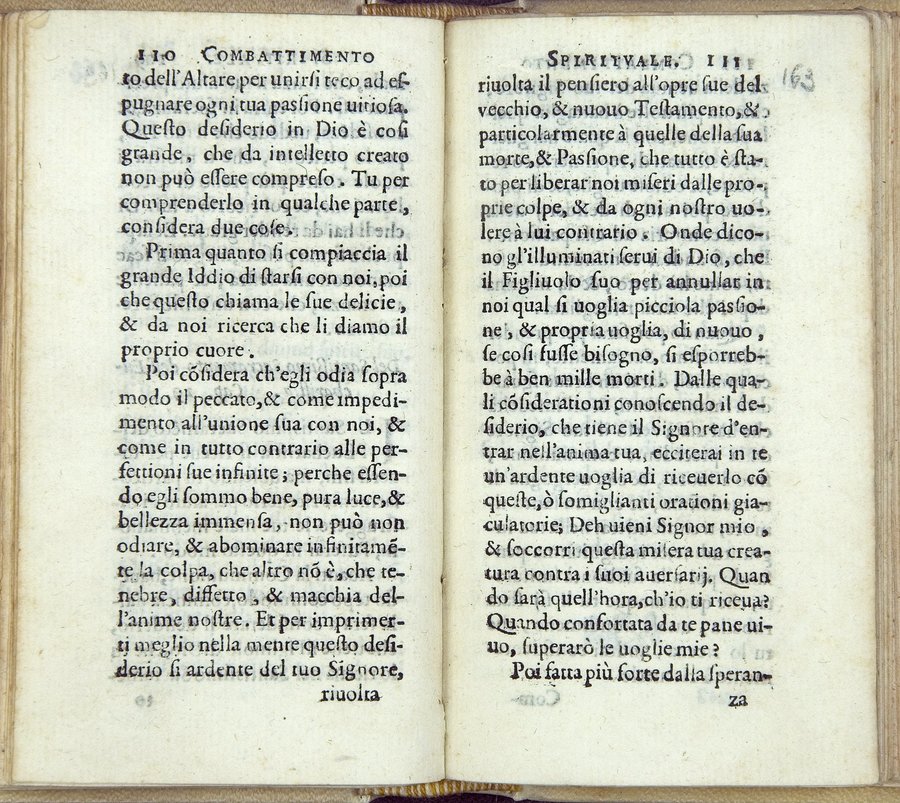 110 COMBATTIMENTO
to dell'Altare per unirsi teco ad es-
pugnare ogni tua passione uitiosa.
Questo desiderio in Dio è cosi
grande, che da intelletto creato
non può essere compreso. Tu per
comprenderlo in qualche parte,
considera due cose.
Prima quanto si compiaccia il
grande Iddio di starsi con noi, poi
che questo chiama le sue delicie,
& da noi ricerca che li diamo il
proprio cuore.
Poi cõsidera ch'egli odia sopra
modo il peccato, & come impedi-
mento all'unione sua con noi, &
come in tutto contrario alle per-
fettioni sue infinite; perche essen-
do egli sommo bene, pura luce, &
bellezza immensa, non può non
odiare, & abominare infinitamẽ-
te la colpa, che altro nõ è, che te-
nebre, diffetto, & macchia del-
l'anime nostre. Et per imprimer-
ti meglio nella mente questo desi-
derio si ardente del tuo Signore,
riuolta
SPIRITVALE. 111
163
riuolta il pensiero all'opre sue del
vecchio, & nuouo Testamento, &
particolarmente à quelle della sua
morte, & Passione, che tutto è sta-
to per liberar noi miseri dalle pro-
prie colpe, & da ogni nostro uo-
lere à lui contrario. Onde dico-
no gl'illuminati serui di Dio, che
il Figliuolo suo per annullar in
noi qual si uoglia picciola passio-
ne, & propria uoglia, di nuouo,
se cosi fusse bisogno, si esporreb-
be à ben mille morti. Dalle qua-
li cõsiderationi conoscendo il de-
siderio, che tiene il Signore d'en-
trar nell'anima tua, ecciterai in te
un'ardente uoglia di riceuerlo cõ
queste, ò somiglianti orationi gia-
culatorie; Deh uieni Signor mio,
& soccorri questa misera tua crea-
tura contra i suoi auersarij. Quan
do sarà quell'hora, ch'io ti riceua?
Quando confortata da te pane ui-
uo, superarò le uoglie mie?
Poi fatta più forte dalla speran-
za